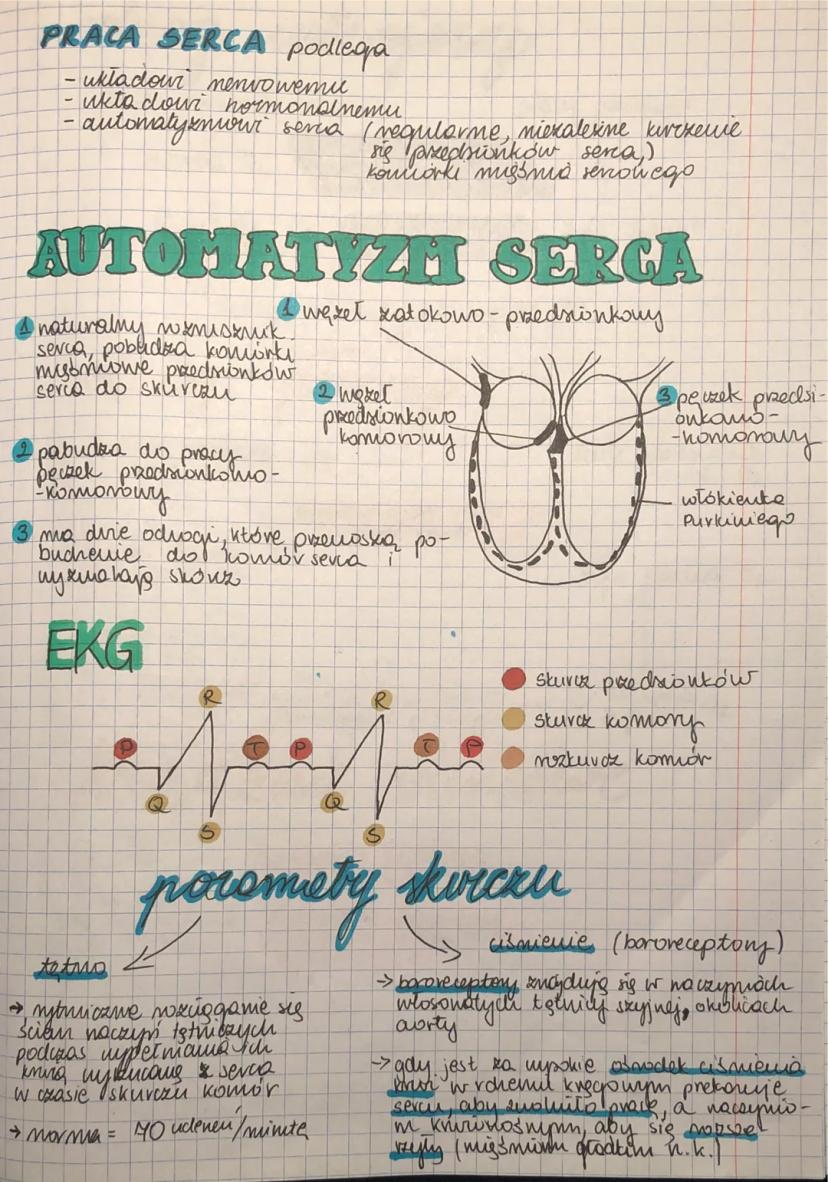 PRACA SERCA podlega
- układowi nerwowemu
- układowi hormonalnemu
- automatyzmowi serca (regularne, niezależne kurczenie
się przedsionków serca,)
komórki mięśnia sercowego
AUTOMATYZM SERCA
1 naturalny rozrusznik
serca, pobudza komórki
mięśniowe przedsionków
serca do skurczu
2 pobudza do pracy
pęczek przedsionkowo-
-komorowy
3 ma dwie odnogi, które przenoszą po-
budzenie do komór serca i
wyzwalają skórcz
1 węzeł zatokowo-przedsionkowy
2 węzeł
przedsionkowo
komorowy
3 pęczek przedsi-
onkowo-
-komorowy
włókienka
Purkiniego
EKG
P Q R S T P Q R S T P
skurcz przedsionków
skurcz komory
rozkurcz komór
parametry skurczu
tętno
→ rytmiczne rozciąganie się
ścian naczyń tętniczych
podczas wypełniania ich
krwią wyrzucaną z serca
w czasie skurczu komór
→ norma = 70 uderzeń/minutę
ciśnienie (baroreceptory)
→ baroreceptory znajdują się w naczyniach
włosowatych tętnicy szyjnej, okolicach
aorty
→ gdy jest za wysokie ośrodek ciśnienia
krwi w rdzeniu kręgowym przekazuje
sercu, aby zwolniło pracę, a naczynio-
m krwionośnym, aby się
(mięśniom gładkim n.k.)